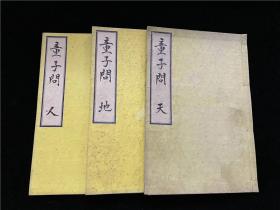 童子問 天
童子問 地
童子問 人